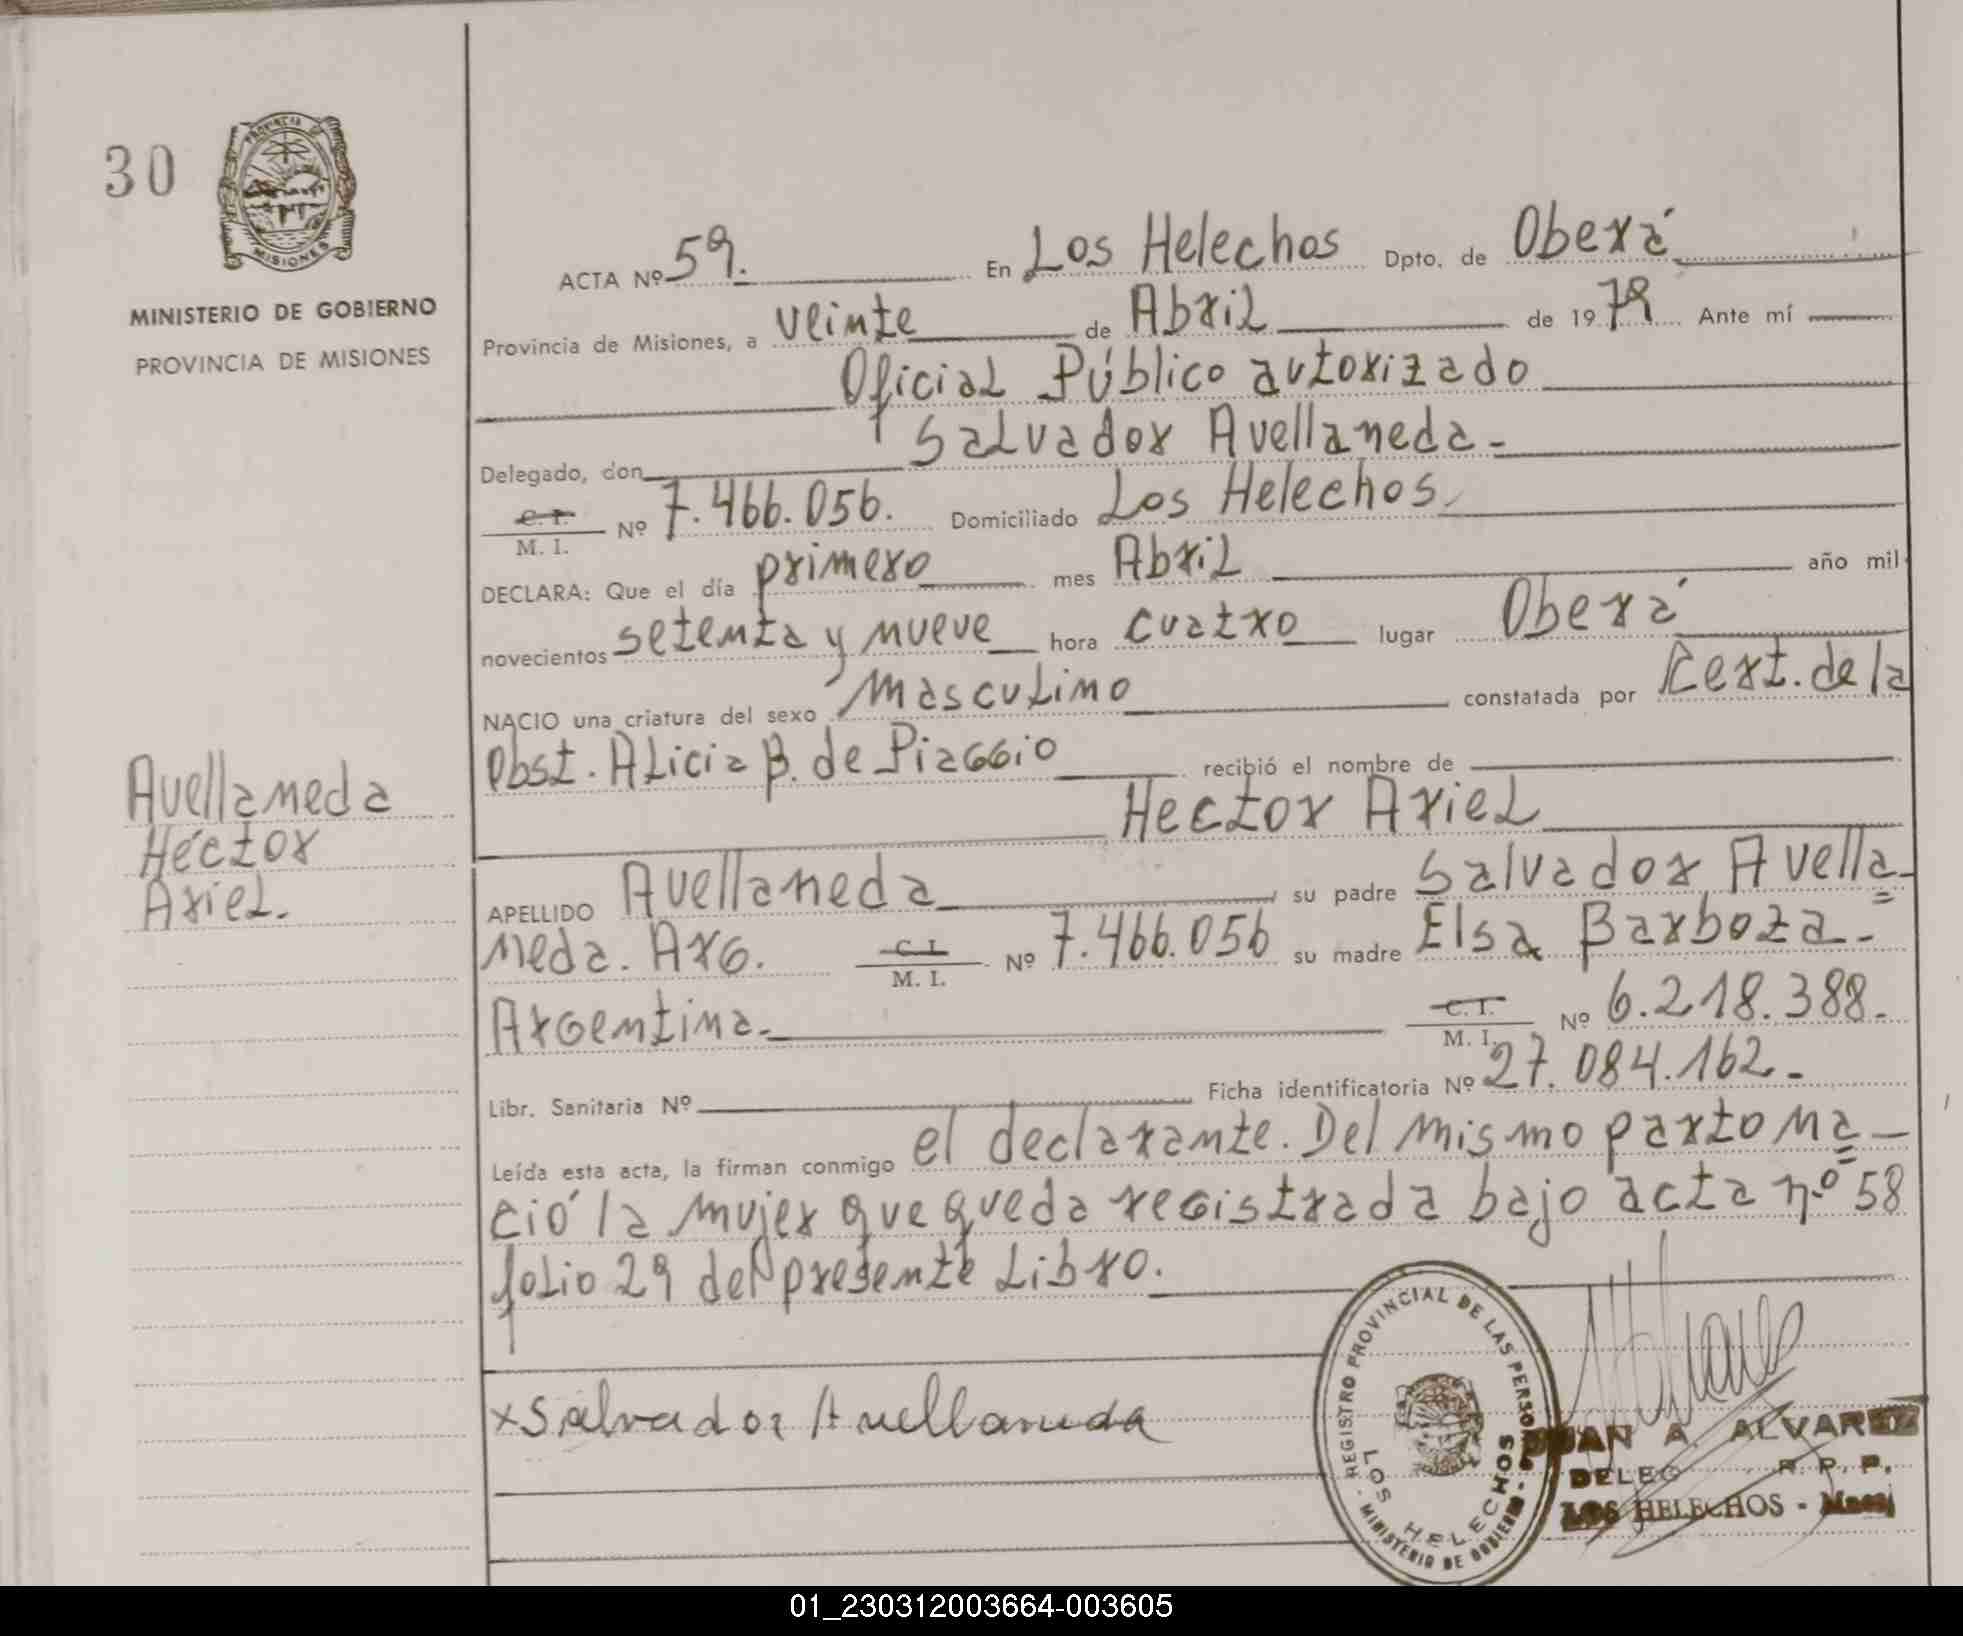 30
PROVINCIA DE
MISIONES
MINISTERIO DE GOBIERNO
PROVINCIA DE MISIONES
ACTA Nº 59. En Los Helechos Dpto. de Oberá
Provincia de Misiones, a veinte de Abril de 1979 Ante mí
Oficial Público autorizado
Delegado, don Salvador Avellaneda-
C. I. M. I. Nº 7.466.056. Domiciliado Los Helechos
DECLARA: Que el día primero mes Abril año mil
novecientos setenta y nueve hora cuatro lugar Oberá
NACIO una criatura del sexo masculino constatada por Cert. de la
Obst. Alicia B. de Piaggio recibió el nombre de
Hector Ariel
Avellaneda
Héctor
Ariel.
APELLIDO Avellaneda su padre Salvador Avella=
neda. Arg. C. I. M. I. Nº 7.466.056 su madre Elsa Barboza-
Argentina.- C. I. M. I. Nº 6.218.388.-
Libr. Sanitaria Nº Ficha identificatoria Nº 27.084.162.-
Leída esta acta, la firman conmigo el declarante. Del mismo parto na=
ció la mujer que queda registrada bajo acta n.º 58
folio 29 del presente Libro.
x Salvador Avellaneda
REGISTRO PROVINCIAL DE LAS PERSONAS
MINISTERIO DE GOBIERNO
LOS HELECHOS
JUAN A. ALVAREZ
DELEG R. P. P.
LOS HELECHOS -
01_230312003664-003605